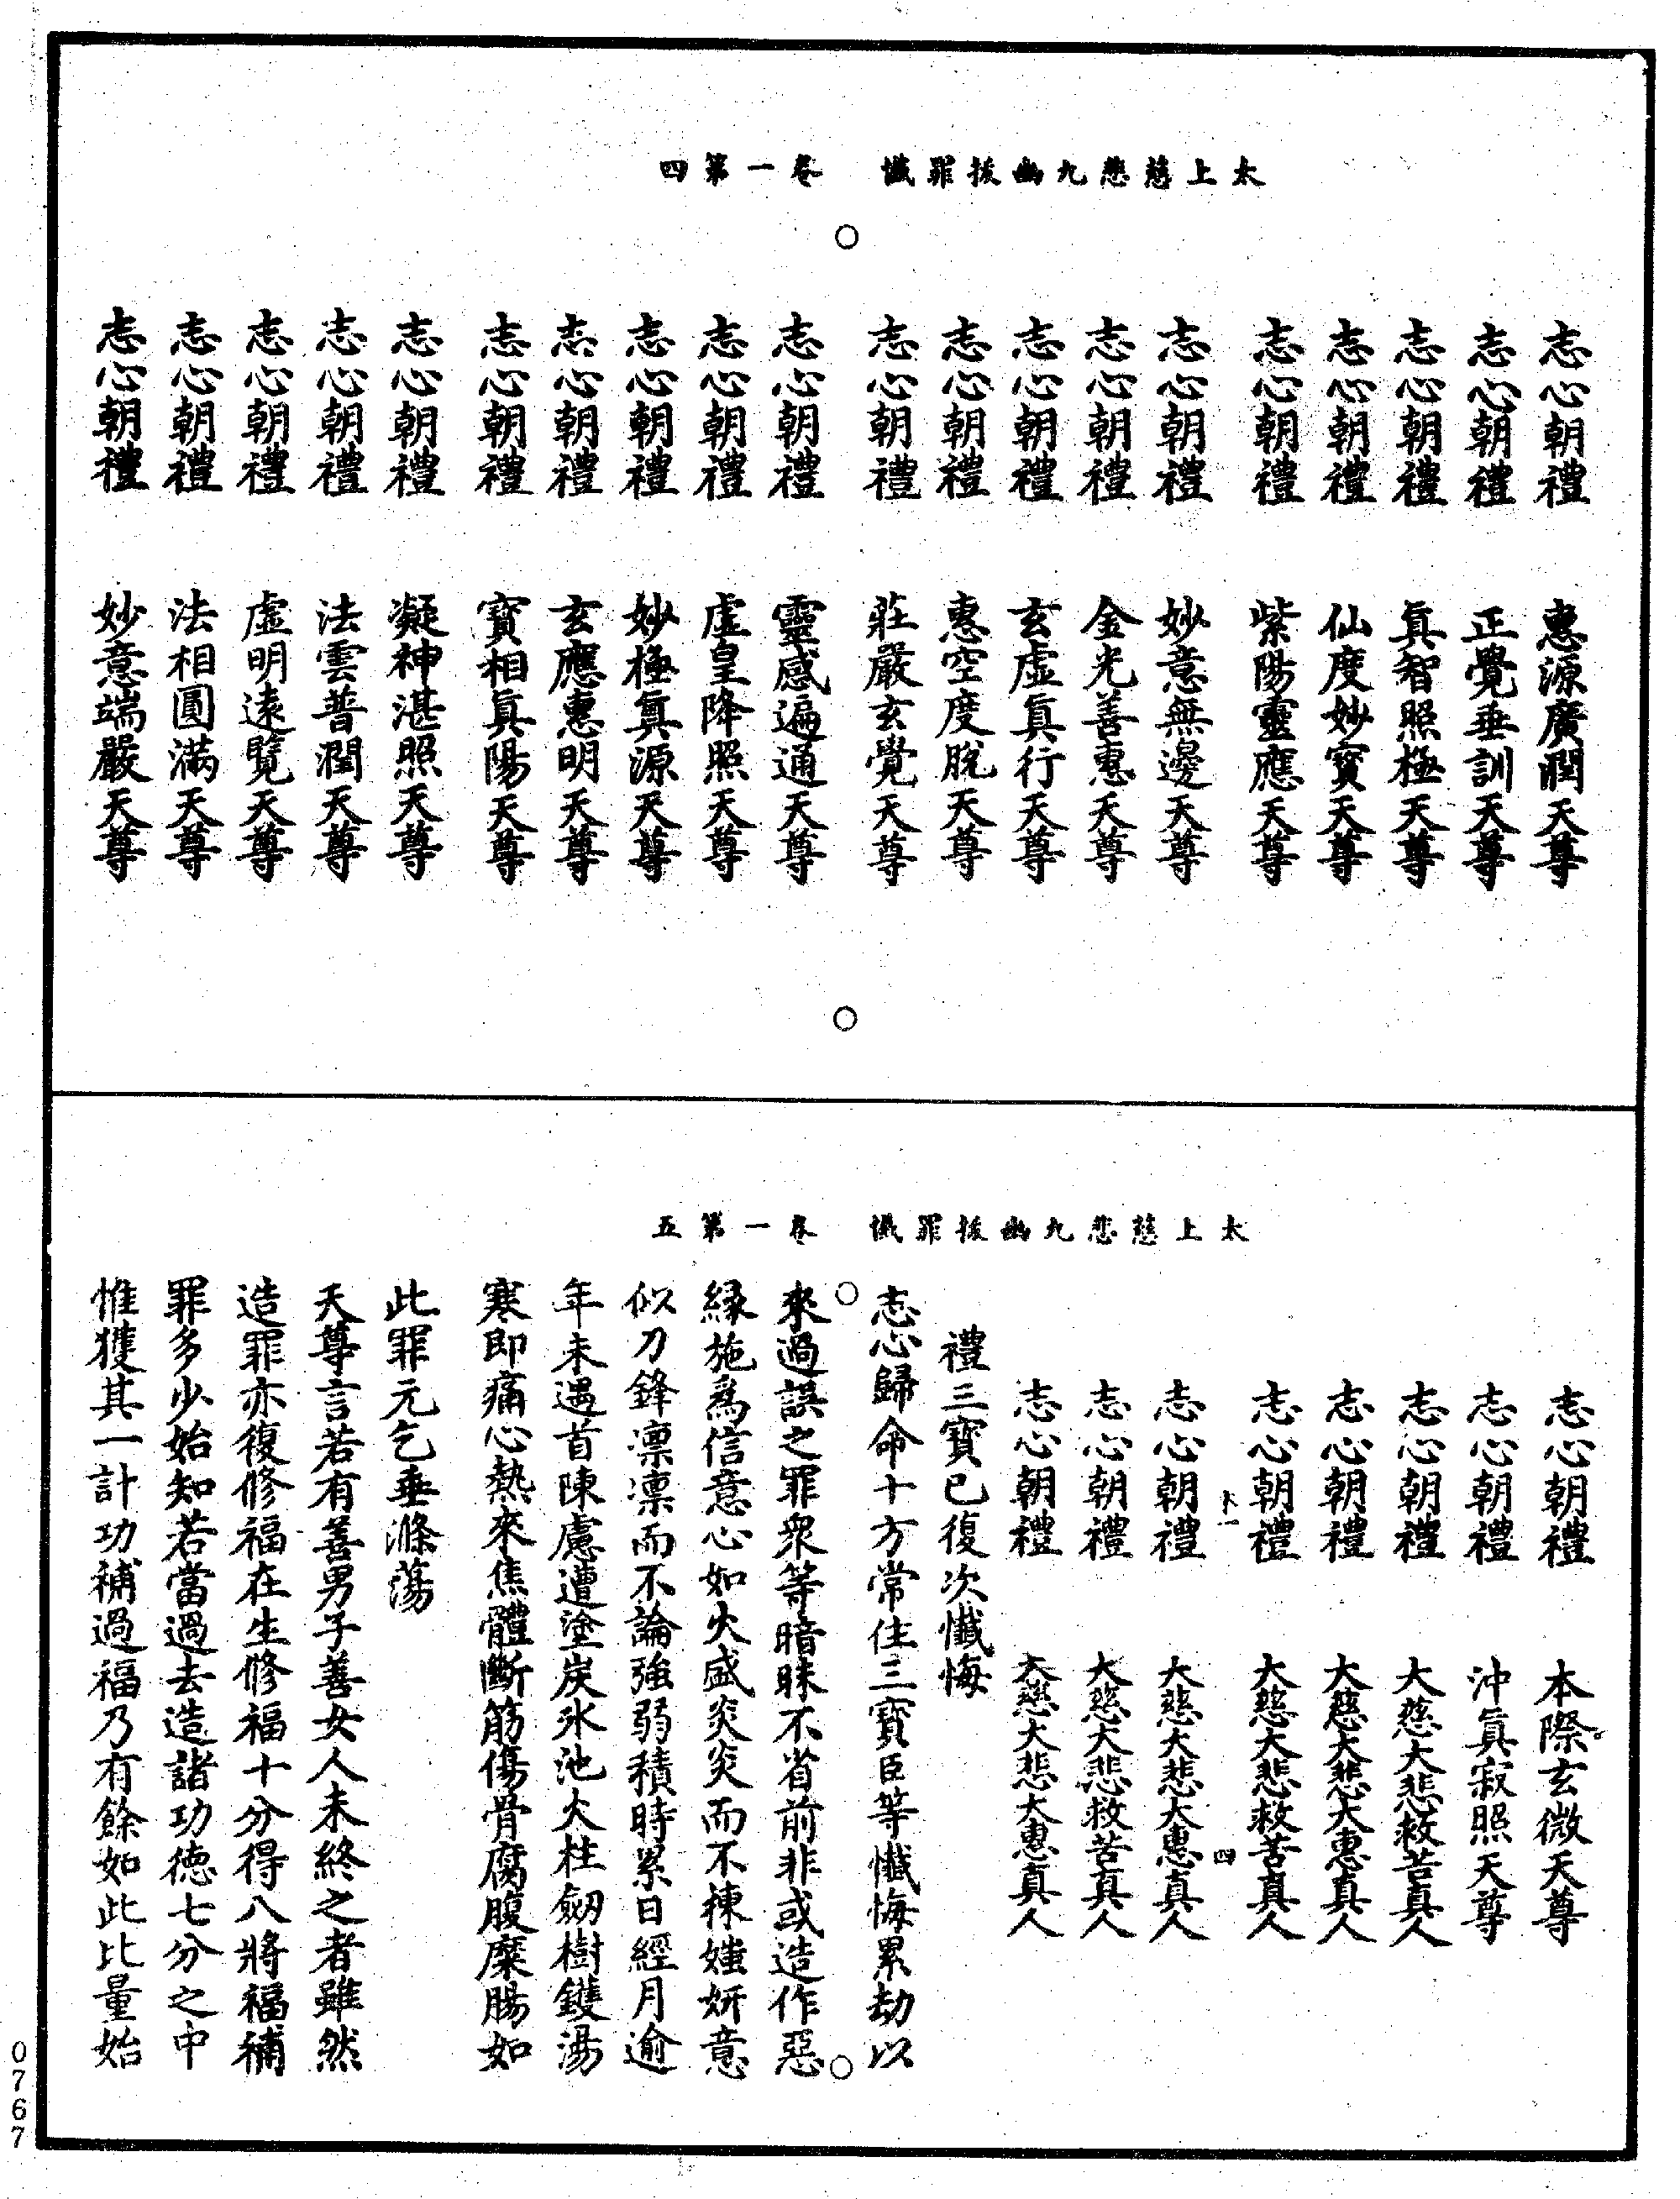 太上慈悲九幽拔罪懺　卷一第四
志心朝禮　惠源廣潤天尊
志心朝禮　正覺垂訓天尊
志心朝禮　真智照極天尊
志心朝禮　仙度妙寶天尊
志心朝禮　紫陽靈應天尊
志心朝禮　妙意無邊天尊
志心朝禮　金光善惠天尊
志心朝禮　玄虛真行天尊
志心朝禮　惠空度脫天尊
志心朝禮　莊嚴玄覺天尊
志心朝禮　靈感遍通天尊
志心朝禮　虛皇降照天尊
志心朝禮　妙極真源天尊
志心朝禮　玄應惠明天尊
志心朝禮　寶相真陽天尊
志心朝禮　凝神湛照天尊
志心朝禮　法雲普潤天尊
志心朝禮　虛明遠覽天尊
志心朝禮　法相圓滿天尊
志心朝禮　妙意端嚴天尊
太上慈悲九幽拔罪懺　卷一第五
志心朝禮　本際玄微天尊
志心朝禮　沖真寂照天尊
志心朝禮　大慈大悲救苦真人
志心朝禮　大慈大悲大惠真人
志心朝禮　大慈大悲救苦真人
卞一　四
志心朝禮　大慈大悲大惠真人
志心朝禮　大慈大悲救苦真人
志心朝禮　大慈大悲大惠真人
禮三寶已復次懺悔
志心歸命十方常住三寶臣等懺悔累劫以
來過誤之罪衆等暗昧不省前非或造作惡
緣施爲信意心如火盛炎炎而不揀媸妍意
似刀鋒凛凛而不論強弱積時累日經月逾
年未遇首陳慮遭塗炭氷池火柱劒樹鑊湯
寒即痛心熱來焦體斷筋傷骨腐腹糜腸如
此罪元乞垂滌蕩
天尊言若有善男子善女人未終之者雖然
造罪亦復修福在生修福十分得八將福補
罪多少始知若當過去造諸功德七分之中
惟獲其一計功補過福乃有餘如此比量始
0767